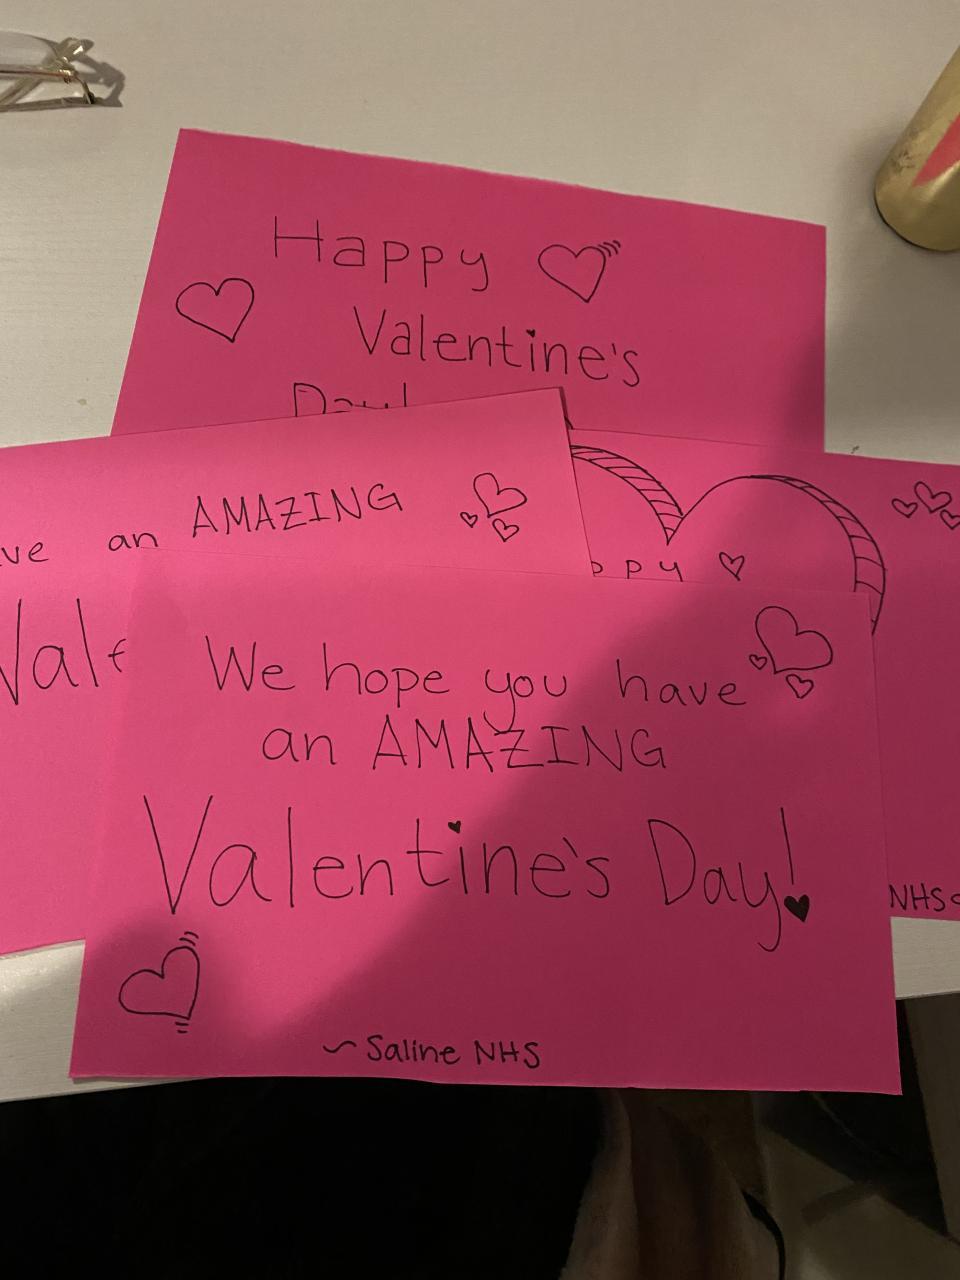 Happy
Valentine's
Day!
an AMAZING
We hope you have
an AMAZING
Valentine's Day!
~ Saline NHS
NHS